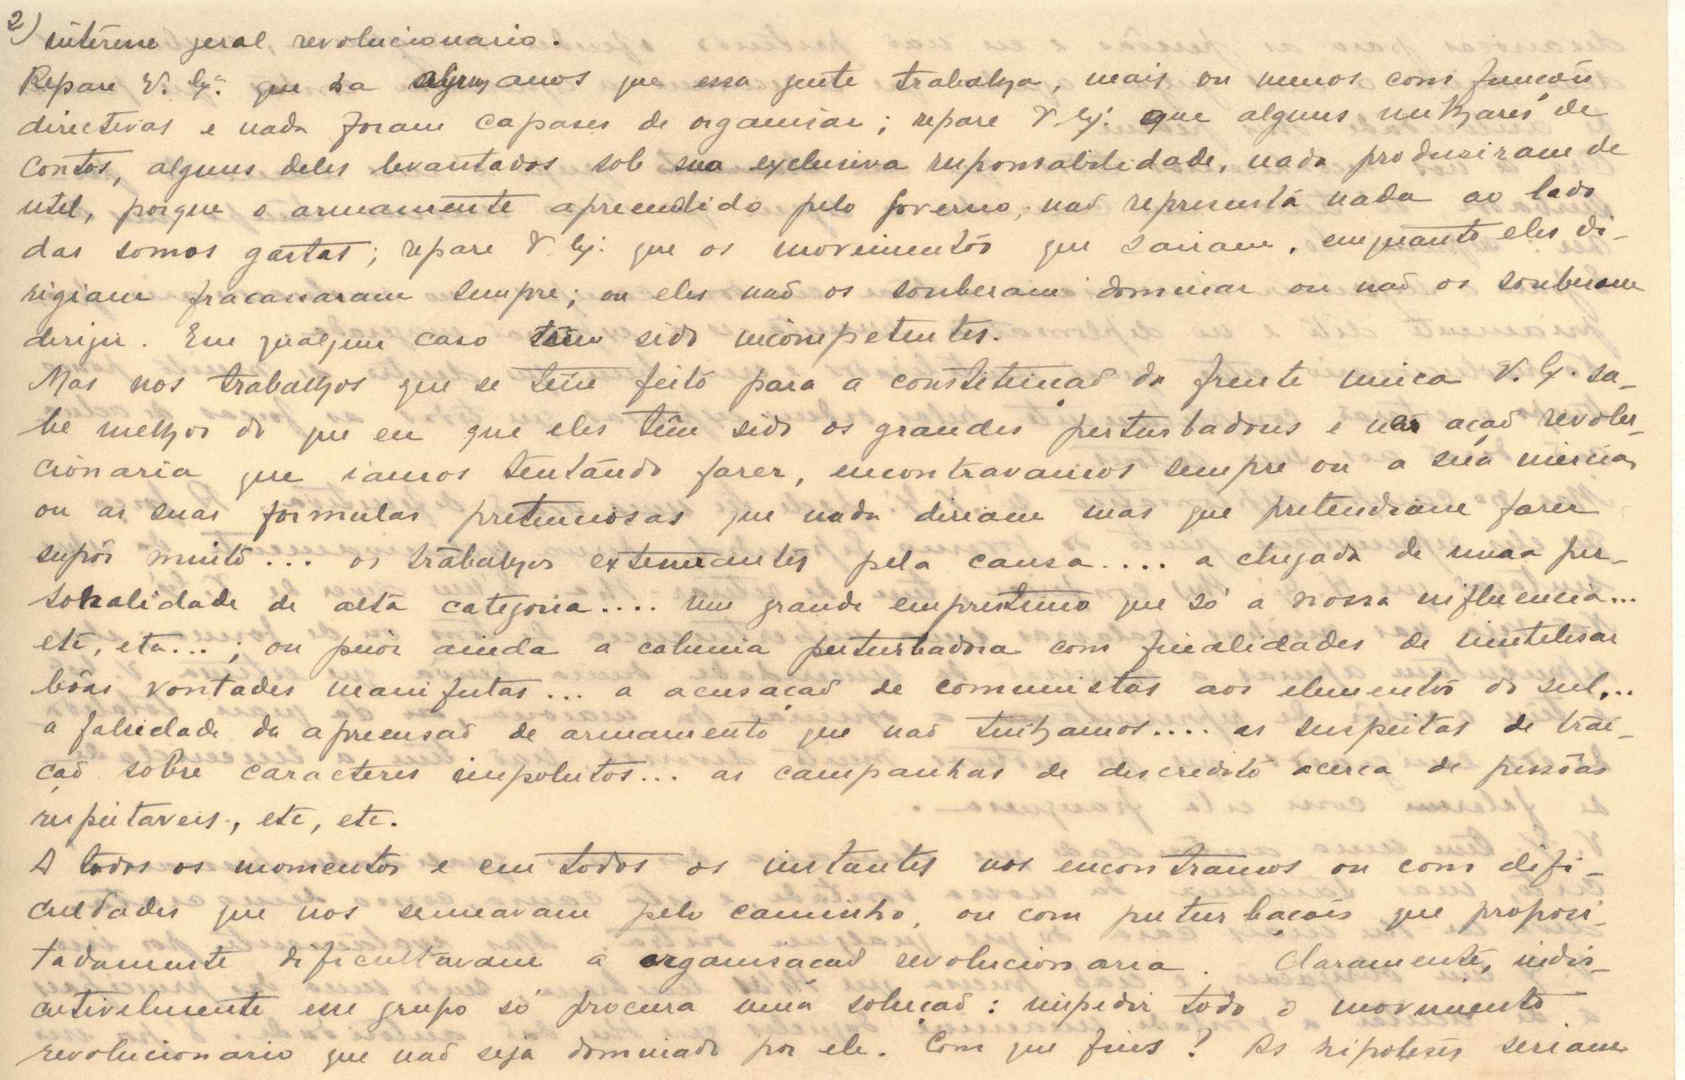 2)
interesse geral revolucionario.
Repare V. Ex. que ha alguns anos que essa gente trabalha, mais ou menos com funções
directivas e nada foram capases de organisar; repare V. Ex. que alguns milhares de
contos, alguns deles levantados sob sua exclusiva responsabilidade, nada produziram de
util, porque o armamento apreendido pelo Governo, naõ representa nada ao lado
das somas gastas; repare V. Ex. que os movimentos que sairam, emquanto eles di-
rigiam fracassaram sempre; ou eles naõ os souberam dominar ou naõ os souberam
dirigir. Em qualquer caso têm sido incompetentes.
Mas nos trabalhos que se têm feito para a constituiçaõ da frente unica V. Ex. sa-
be melhor do que eu que eles têm sido os grandes perturbadores e na açaõ revolu-
cionaria que iamos tentando fazer, encontravamos sempre ou a sua inercia
ou as suas formulas pretenciosas que nada diziam mas que pretendiam fazer
supôr muito... os trabalhos extenuantes pela causa.... a chegada de uma per-
sonalidade de alta categoria.... um grande emprestimo que só a nossa influencia...
etc, etc...; ou peior ainda a calunia perturbadora com finalidades de inutilisar
bôas vontades manifestas... a acusaçaõ de comunistas aos elementos do sul...
a falsidade da apreensaõ de armamento que naõ tinhamos.... as suspeitas de trai-
çaõ sobre caracteres impolutos... as campanhas de descredito acerca de pessôas
respeitaveis, etc, etc.
A todos os momentos e em todos os instantes nos encontramos ou com difi-
culdades que nos semeavam pelo caminho, ou com perturbações que proposi-
tadamente dificultavam a organisaçaõ revolucionaria. Claramente, indis-
cutivelmente esse grupo só procura uma soluçaõ: impedir todo o movimento
revolucionario que naõ seja dominado por ele. Com que fins? As hipoteses seriam